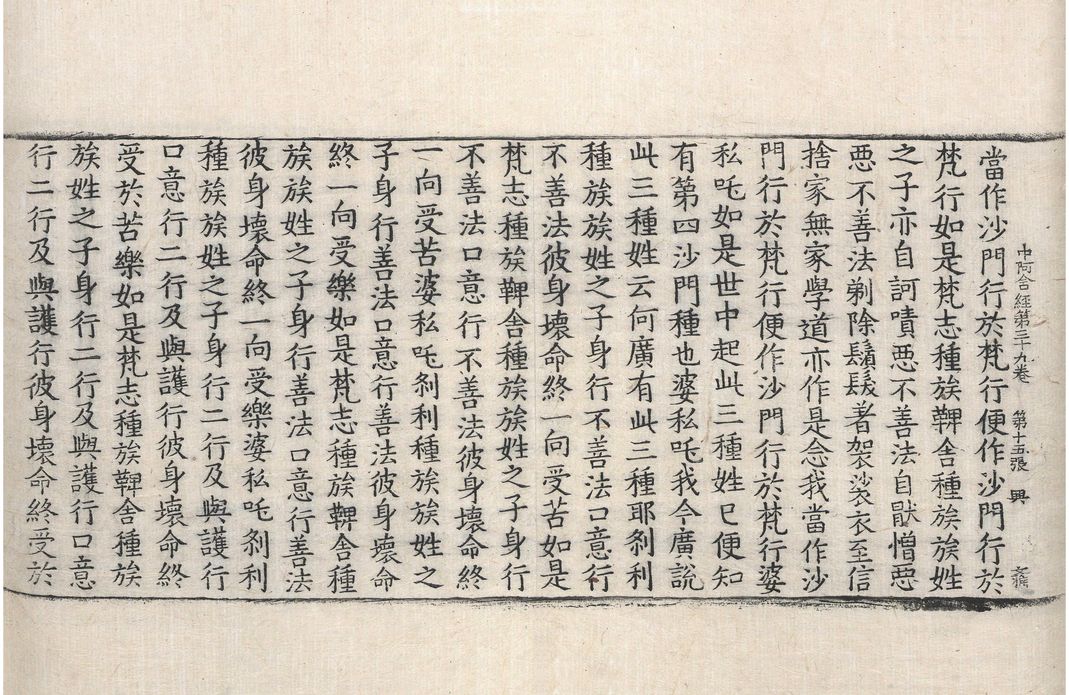 中阿含經第三十九卷　第十五張　興
當作沙門行於梵行便作沙門行於
梵行如是梵志種族鞞舍種族族姓
之子亦自訶嘖惡不善法自猒憎惡
惡不善法剃除鬚髮著袈裟衣至信
捨家無家學道亦作是念我當作沙
門行於梵行便作沙門行於梵行婆
私吒如是世中起此三種姓已便知
有第四沙門種也婆私吒我今廣說
此三種姓云何廣有此三種耶刹利
種族族姓之子身行不善法口意行
不善法彼身壞命終一向受苦如是
梵志種族鞞舍種族族姓之子身行
不善法口意行不善法彼身壞命終
一向受苦婆私吒刹利種族族姓之
子身行善法口意行善法彼身壞命
終一向受樂如是梵志種族鞞舍種
族族姓之子身行善法口意行善法
彼身壞命終一向受樂婆私吒刹利
種族族姓之子身行二行及與護行
口意行二行及與護行彼身壞命終
受於苦樂如是梵志種族鞞舍種族
族姓之子身行二行及與護行口意
行二行及與護行彼身壞命終受於